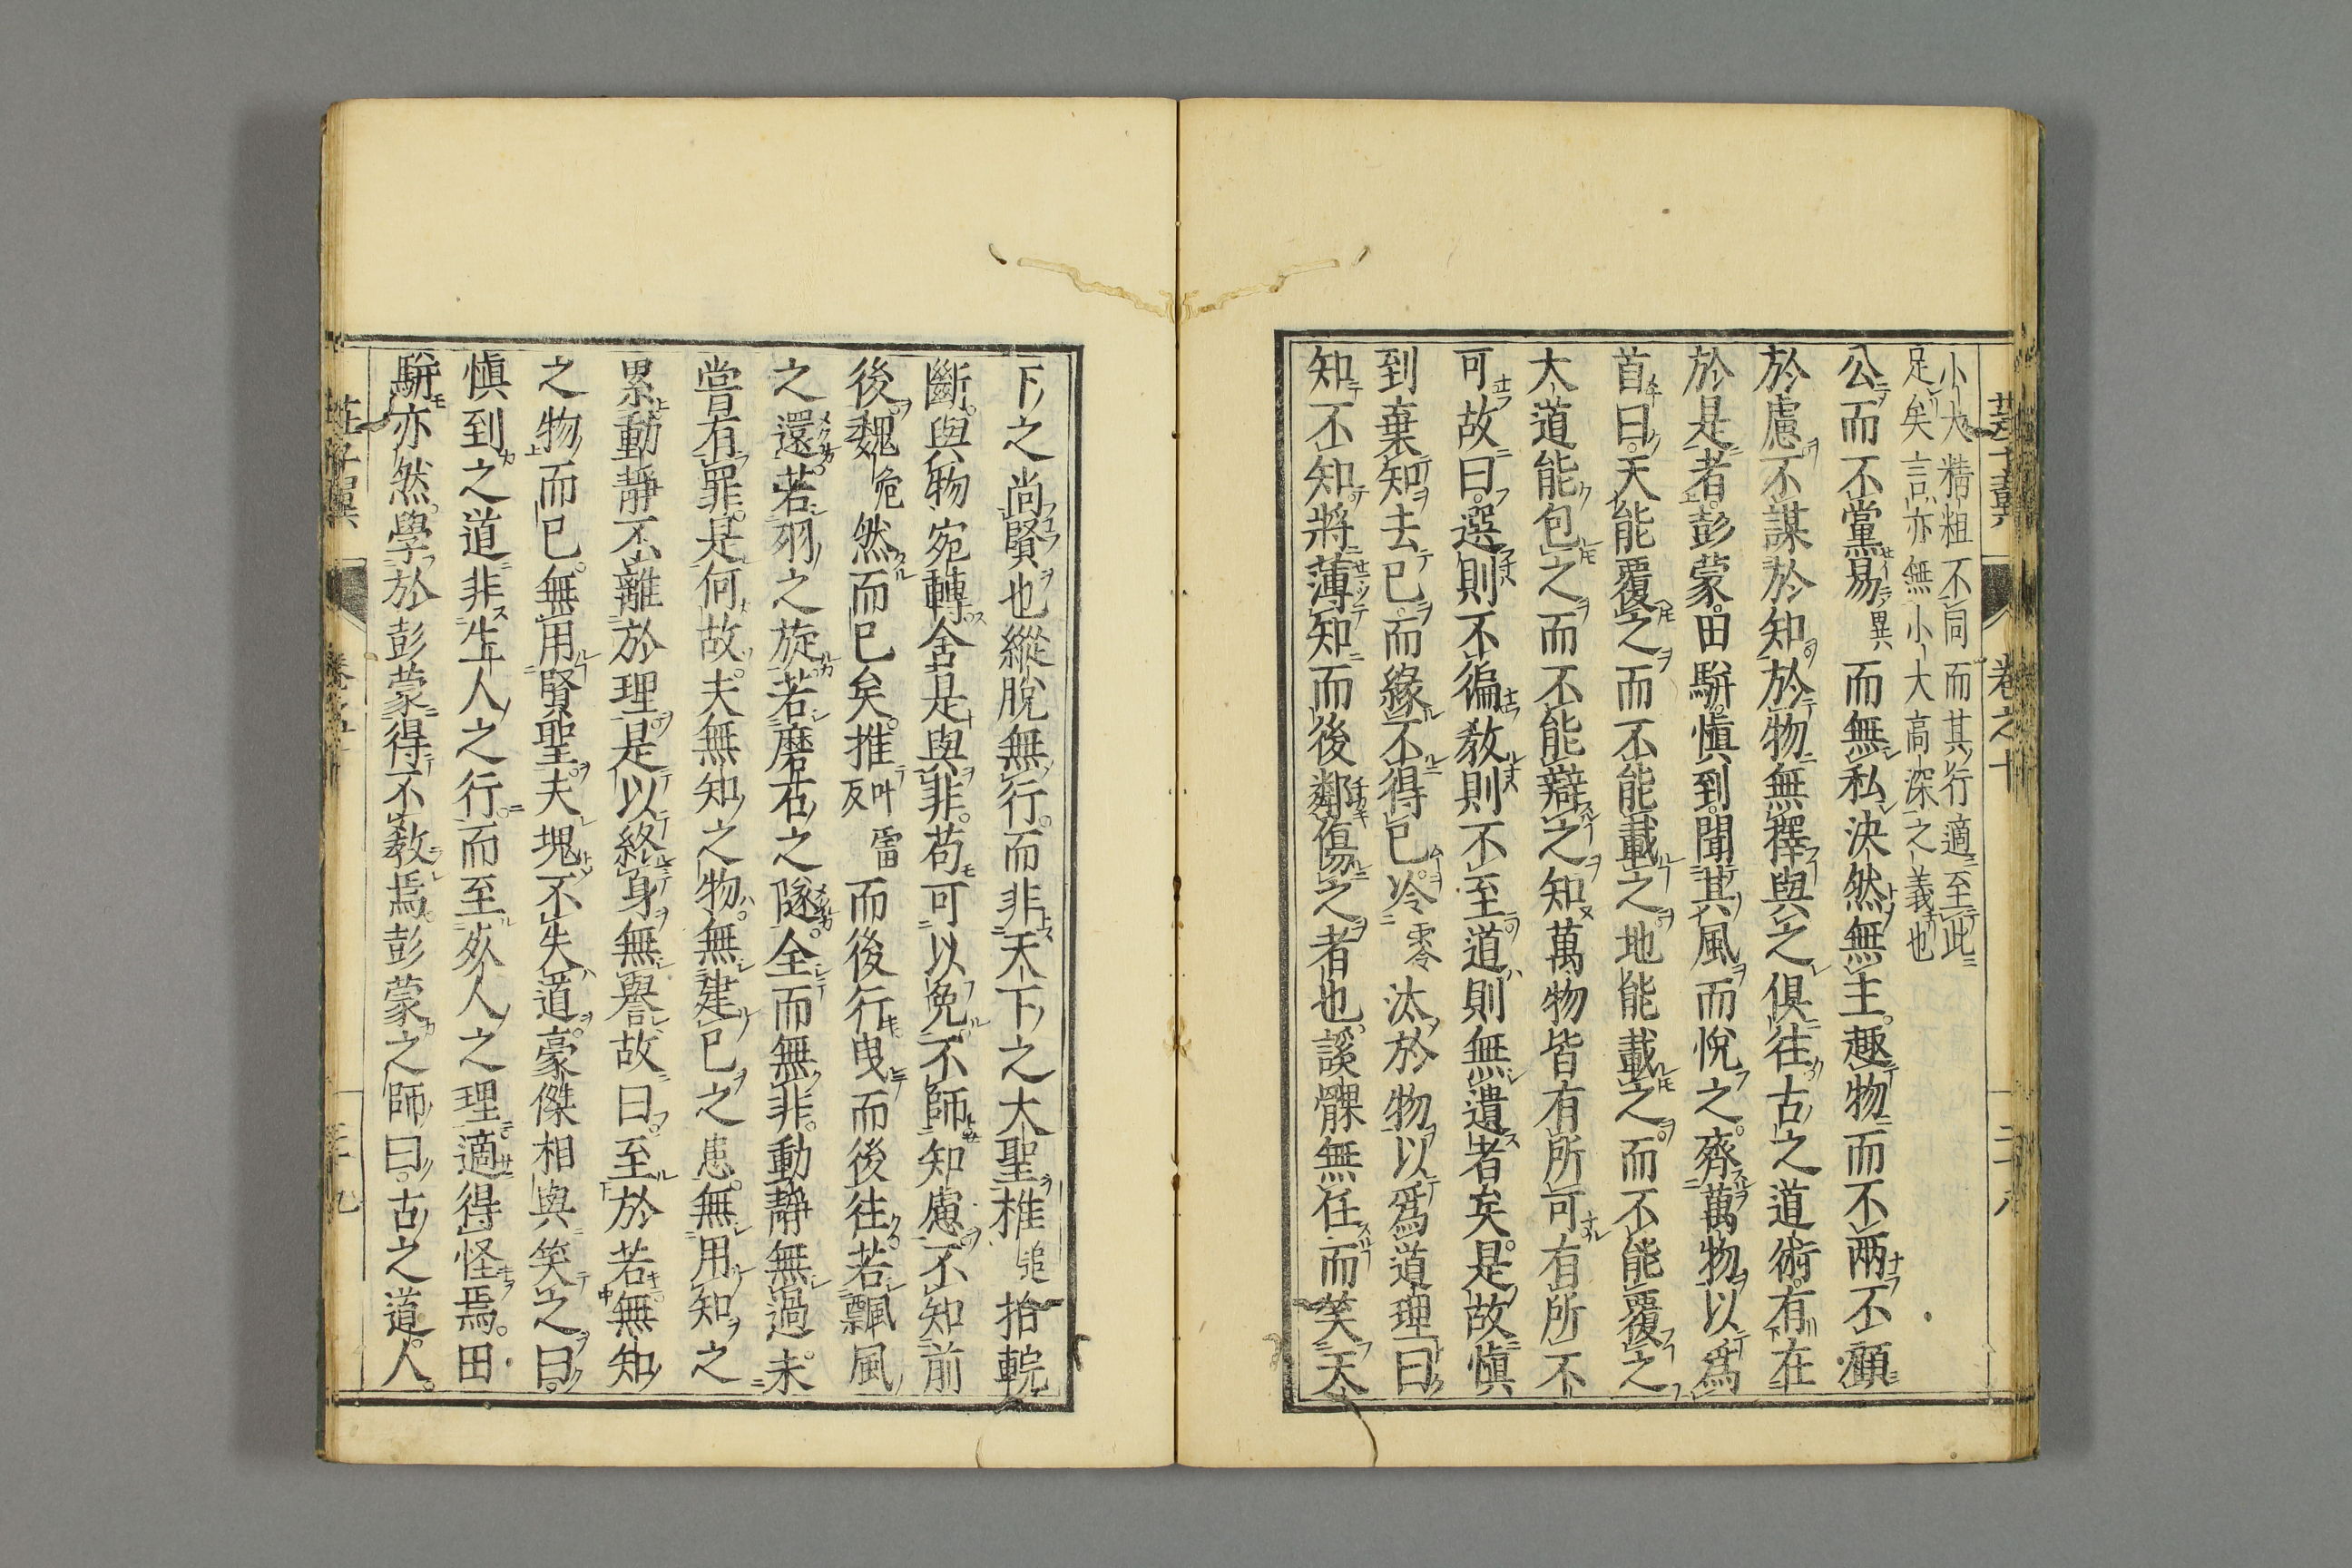 莊子翼 卷之十 二十八
小大精粗不同而其行適至此
足矣言亦無小大高深之義也
公而不黨易異而無私決然無主趣物而不兩不顧
於慮不謀於知於物無擇與之俱往古之道術有在
於是者彭蒙田駢慎到聞其風而悅之齊萬物以爲
首曰天能覆之而不能載之地能載之而不能覆之
大道能包之而不能辯之知萬物皆有所可有所不
可故曰選則不徧教則不至道則無遺者矣是故慎
到棄知去已而緣不得已冷零汰於物以爲道理曰
知不知將薄知而後鄰傷之者也謑髁無任而笑天
下之尚賢也縱脫無行而非天下之大聖椎追拍輐
斷與物宛轉舍是與非苟可以免不師知慮不知前
後魏危然而已矣推叶雷反而後行曳而後往若飄風
之還若羽之旋若磨石之隧全而無非動靜無過未
嘗有罪是何故夫無知之物無建已之患無用知之
累動靜不離於理是以終身無譽故曰至於若無知
之物而已無用賢聖夫塊不失道豪傑相與笑之曰
慎到之道非生人之行而至死人之理適得怪焉田
駢亦然學於彭蒙得不教焉彭蒙之師曰古之道人